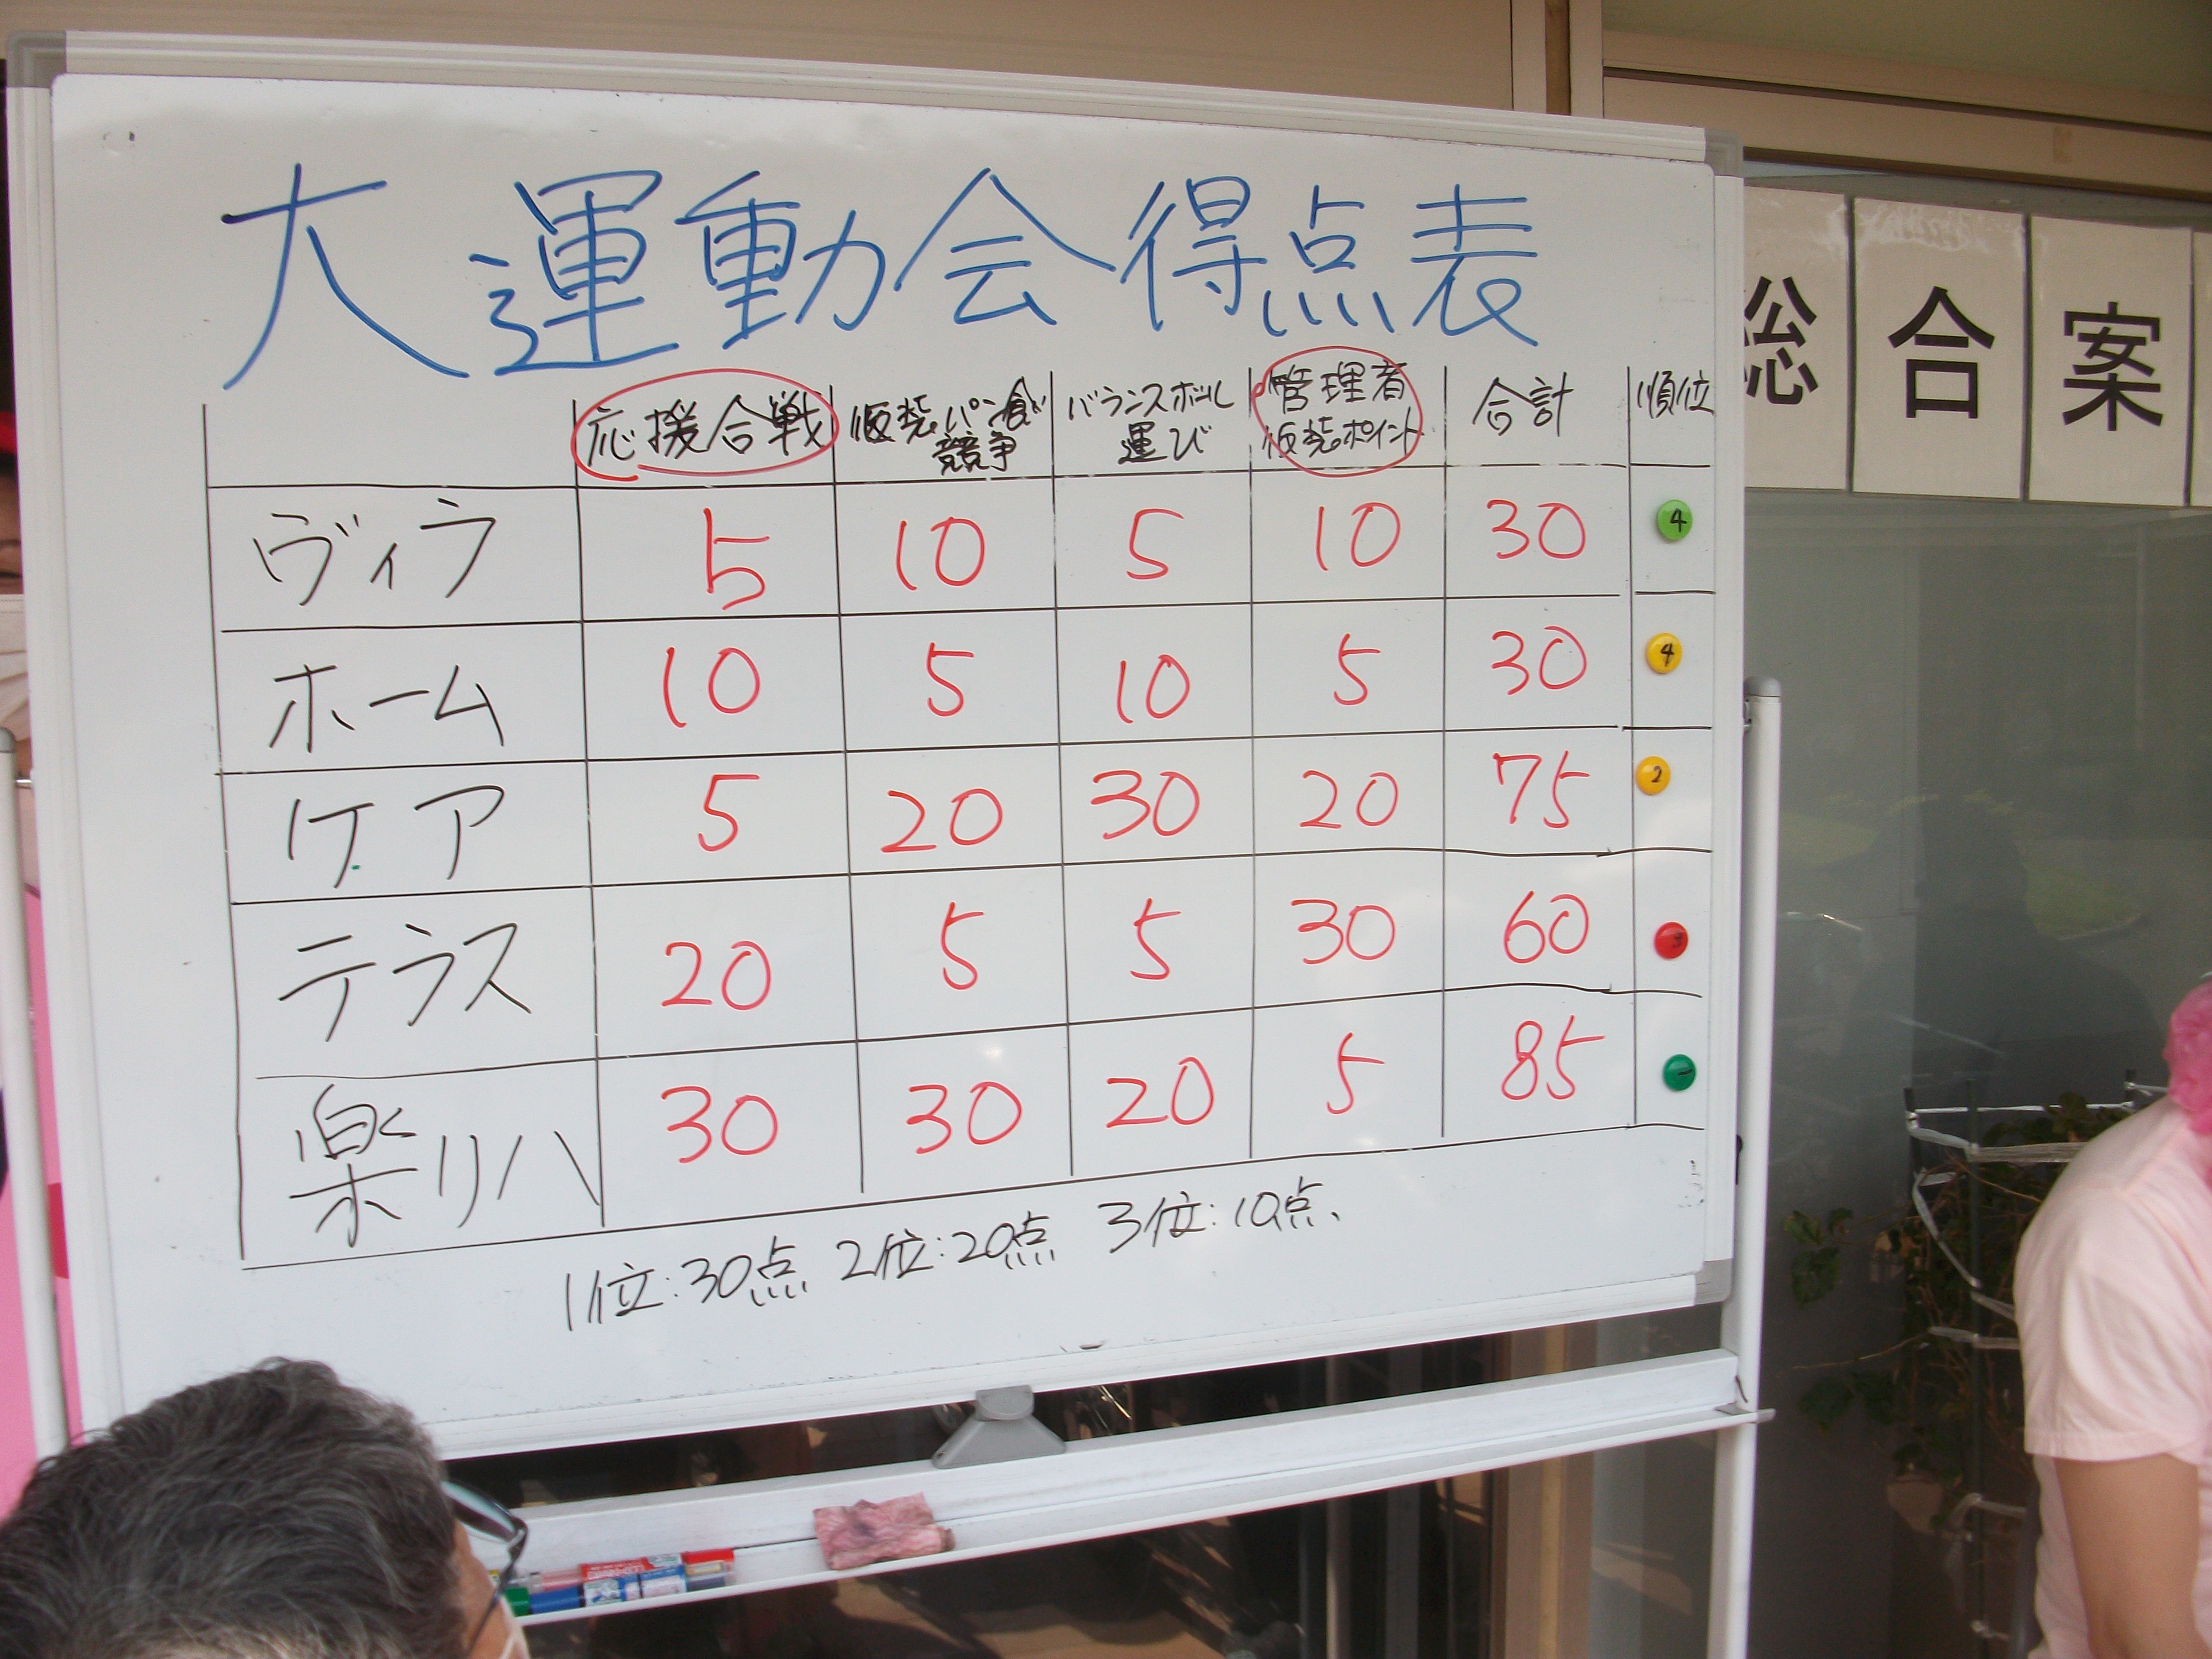 大運動会得点表
応援合戦 仮装パン食い競争 バランスボール運び 管理者仮装ポイント 合計 順位
ヴィラ 5 10 5 10 30 4
ホーム 10 5 10 5 30 4
ケア 5 20 30 20 75 2
テラス 20 5 5 30 60 3
楽リハ 30 30 20 5 85 1
1位:30点 2位:20点 3位:10点
総合案